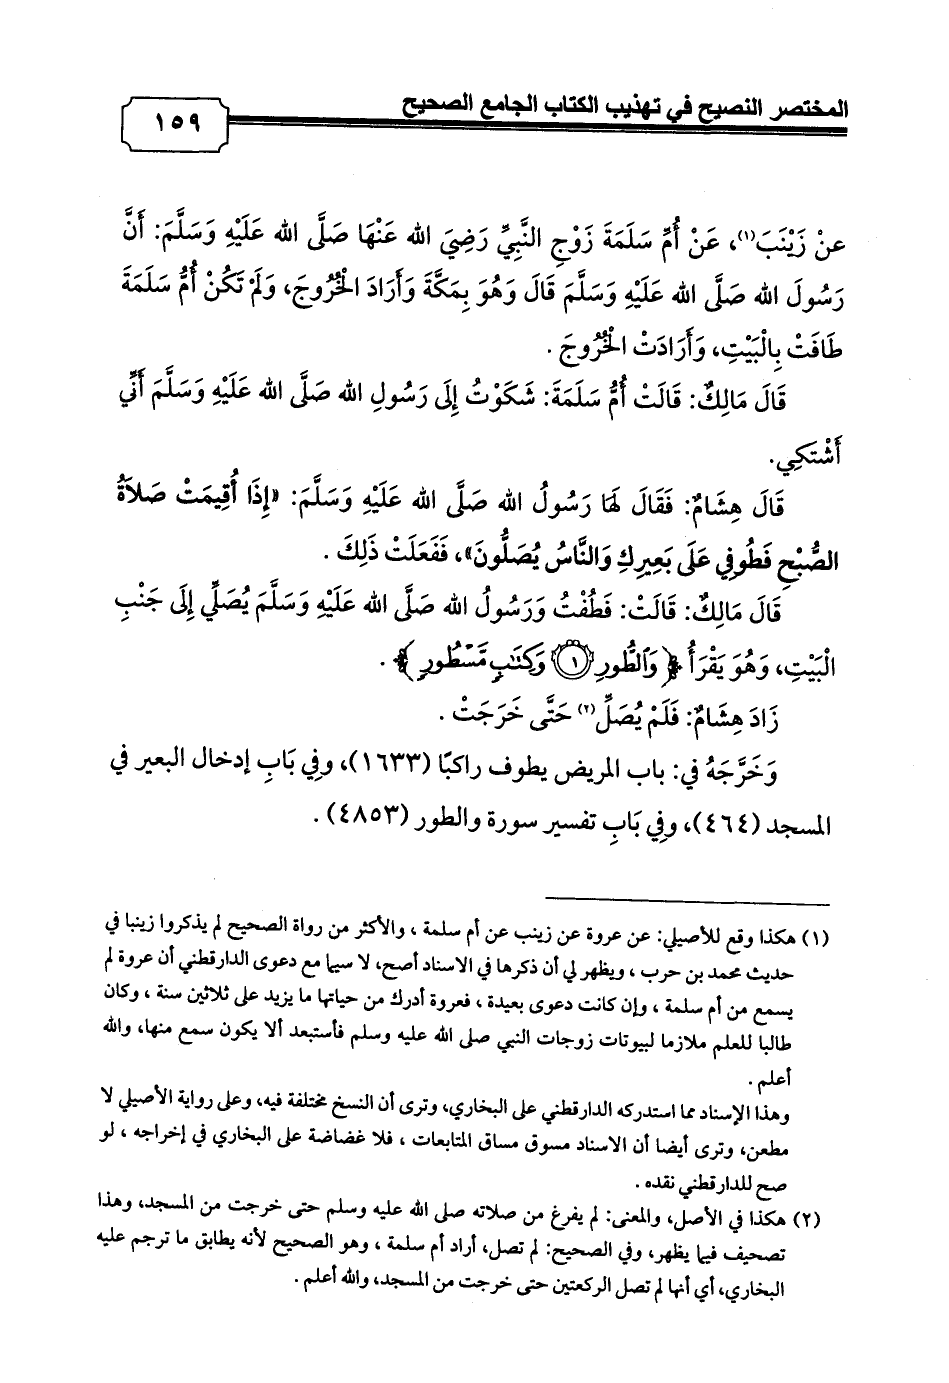 المختصر النصيح في تهذيب الكتاب الجامع الصحيح
١٥٩
عنْ زَيْنَبَ(١)، عَنْ أُمِّ سَلَمَةَ زَوْجِ النَّبِيِّ رَضِيَ الله عَنْهَا صَلَّى الله عَلَيْهِ وَسَلَّمَ: أَنَّ
رَسُولَ الله صَلَّى الله عَلَيْهِ وَسَلَّمَ قَالَ وَهُوَ بِمَكَّةَ وَأَرَادَ الْخُرُوجَ، وَلَمْ تَكُنْ أُمُّ سَلَمَةَ
طَافَتْ بِالْبَيْتِ، وَأَرَادَتْ الْخُرُوجَ .
قَالَ مَالِكٌ: قَالَتْ أُمُّ سَلَمَةَ: شَكَوْتُ إِلَى رَسُولِ الله صَلَّى الله عَلَيْهِ وَسَلَّمَ أَنِّي
أَشْتَكِي.
قَالَ هِشَامٌ: فَقَالَ لَهَا رَسُولُ الله صَلَّى الله عَلَيْهِ وَسَلَّمَ: «إِذَا أُقِيمَتْ صَلاَةُ
الصُّبْحِ فَطُوفِي عَلَى بَعِيرِكِ وَالنَّاسُ يُصَلُّونَ»، فَفَعَلَتْ ذَلِكَ .
قَالَ مَالِكٌ: قَالَتْ: فَطُفْتُ وَرَسُولُ الله صَلَّى الله عَلَيْهِ وَسَلَّمَ يُصَلِّي إِلَى جَنْبِ
الْبَيْتِ، وَهُوَ يَقْرَأُ ﴿وَالطُّورِ ١ وَكِتَابٍ مَّسْطُورٍ﴾ .
زَادَ هِشَامٌ: فَلَمْ يُصَلِّ(٢) حَتَّى خَرَجَتْ .
وَخَرَّجَهُ في: باب المريض يطوف راكبًا (١٦٣٣)، وفِي بَابِ إدخال البعير في
المسجد (٤٦٤)، وفِي بَابِ تفسير سورة والطور (٤٨٥٣) .
(١) هكذا وقع للأصيلي: عن عروة عن زينب عن أم سلمة ، والأكثر من رواة الصحيح لم يذكروا زينبا في
حديث محمد بن حرب ، ويظهر لي أن ذكرها في الاسناد أصح، لا سيما مع دعوى الدارقطني أن عروة لم
يسمع من أم سلمة ، وإن كانت دعوى بعيدة ، فعروة أدرك من حياتها ما يزيد على ثلاثين سنة ، وكان
طالبا للعلم ملازما لبيوتات زوجات النبي صلى الله عليه وسلم فأستبعد ألا يكون سمع منها، والله
أعلم .
وهذا الإسناد مما استدركه الدارقطني على البخاري، وترى أن النسخ مختلفة فيه، وعلى رواية الأصيلي لا
مطعن، وترى أيضا أن الاسناد مسوق مساق المتابعات ، فلا غضاضة على البخاري في إخراجه ، لو
صح للدارقطني نقده .
(٢) هكذا في الأصل، والمعنى: لم يفرغ من صلاته صلى الله عليه وسلم حتى خرجت من المسجد، وهذا
تصحيف فيما يظهر، وفي الصحيح: لم تصل، أراد أم سلمة ، وهو الصحيح لأنه يطابق ما ترجم عليه
البخاري، أي أنها لم تصل الركعتين حتى خرجت من المسجد، والله أعلم .